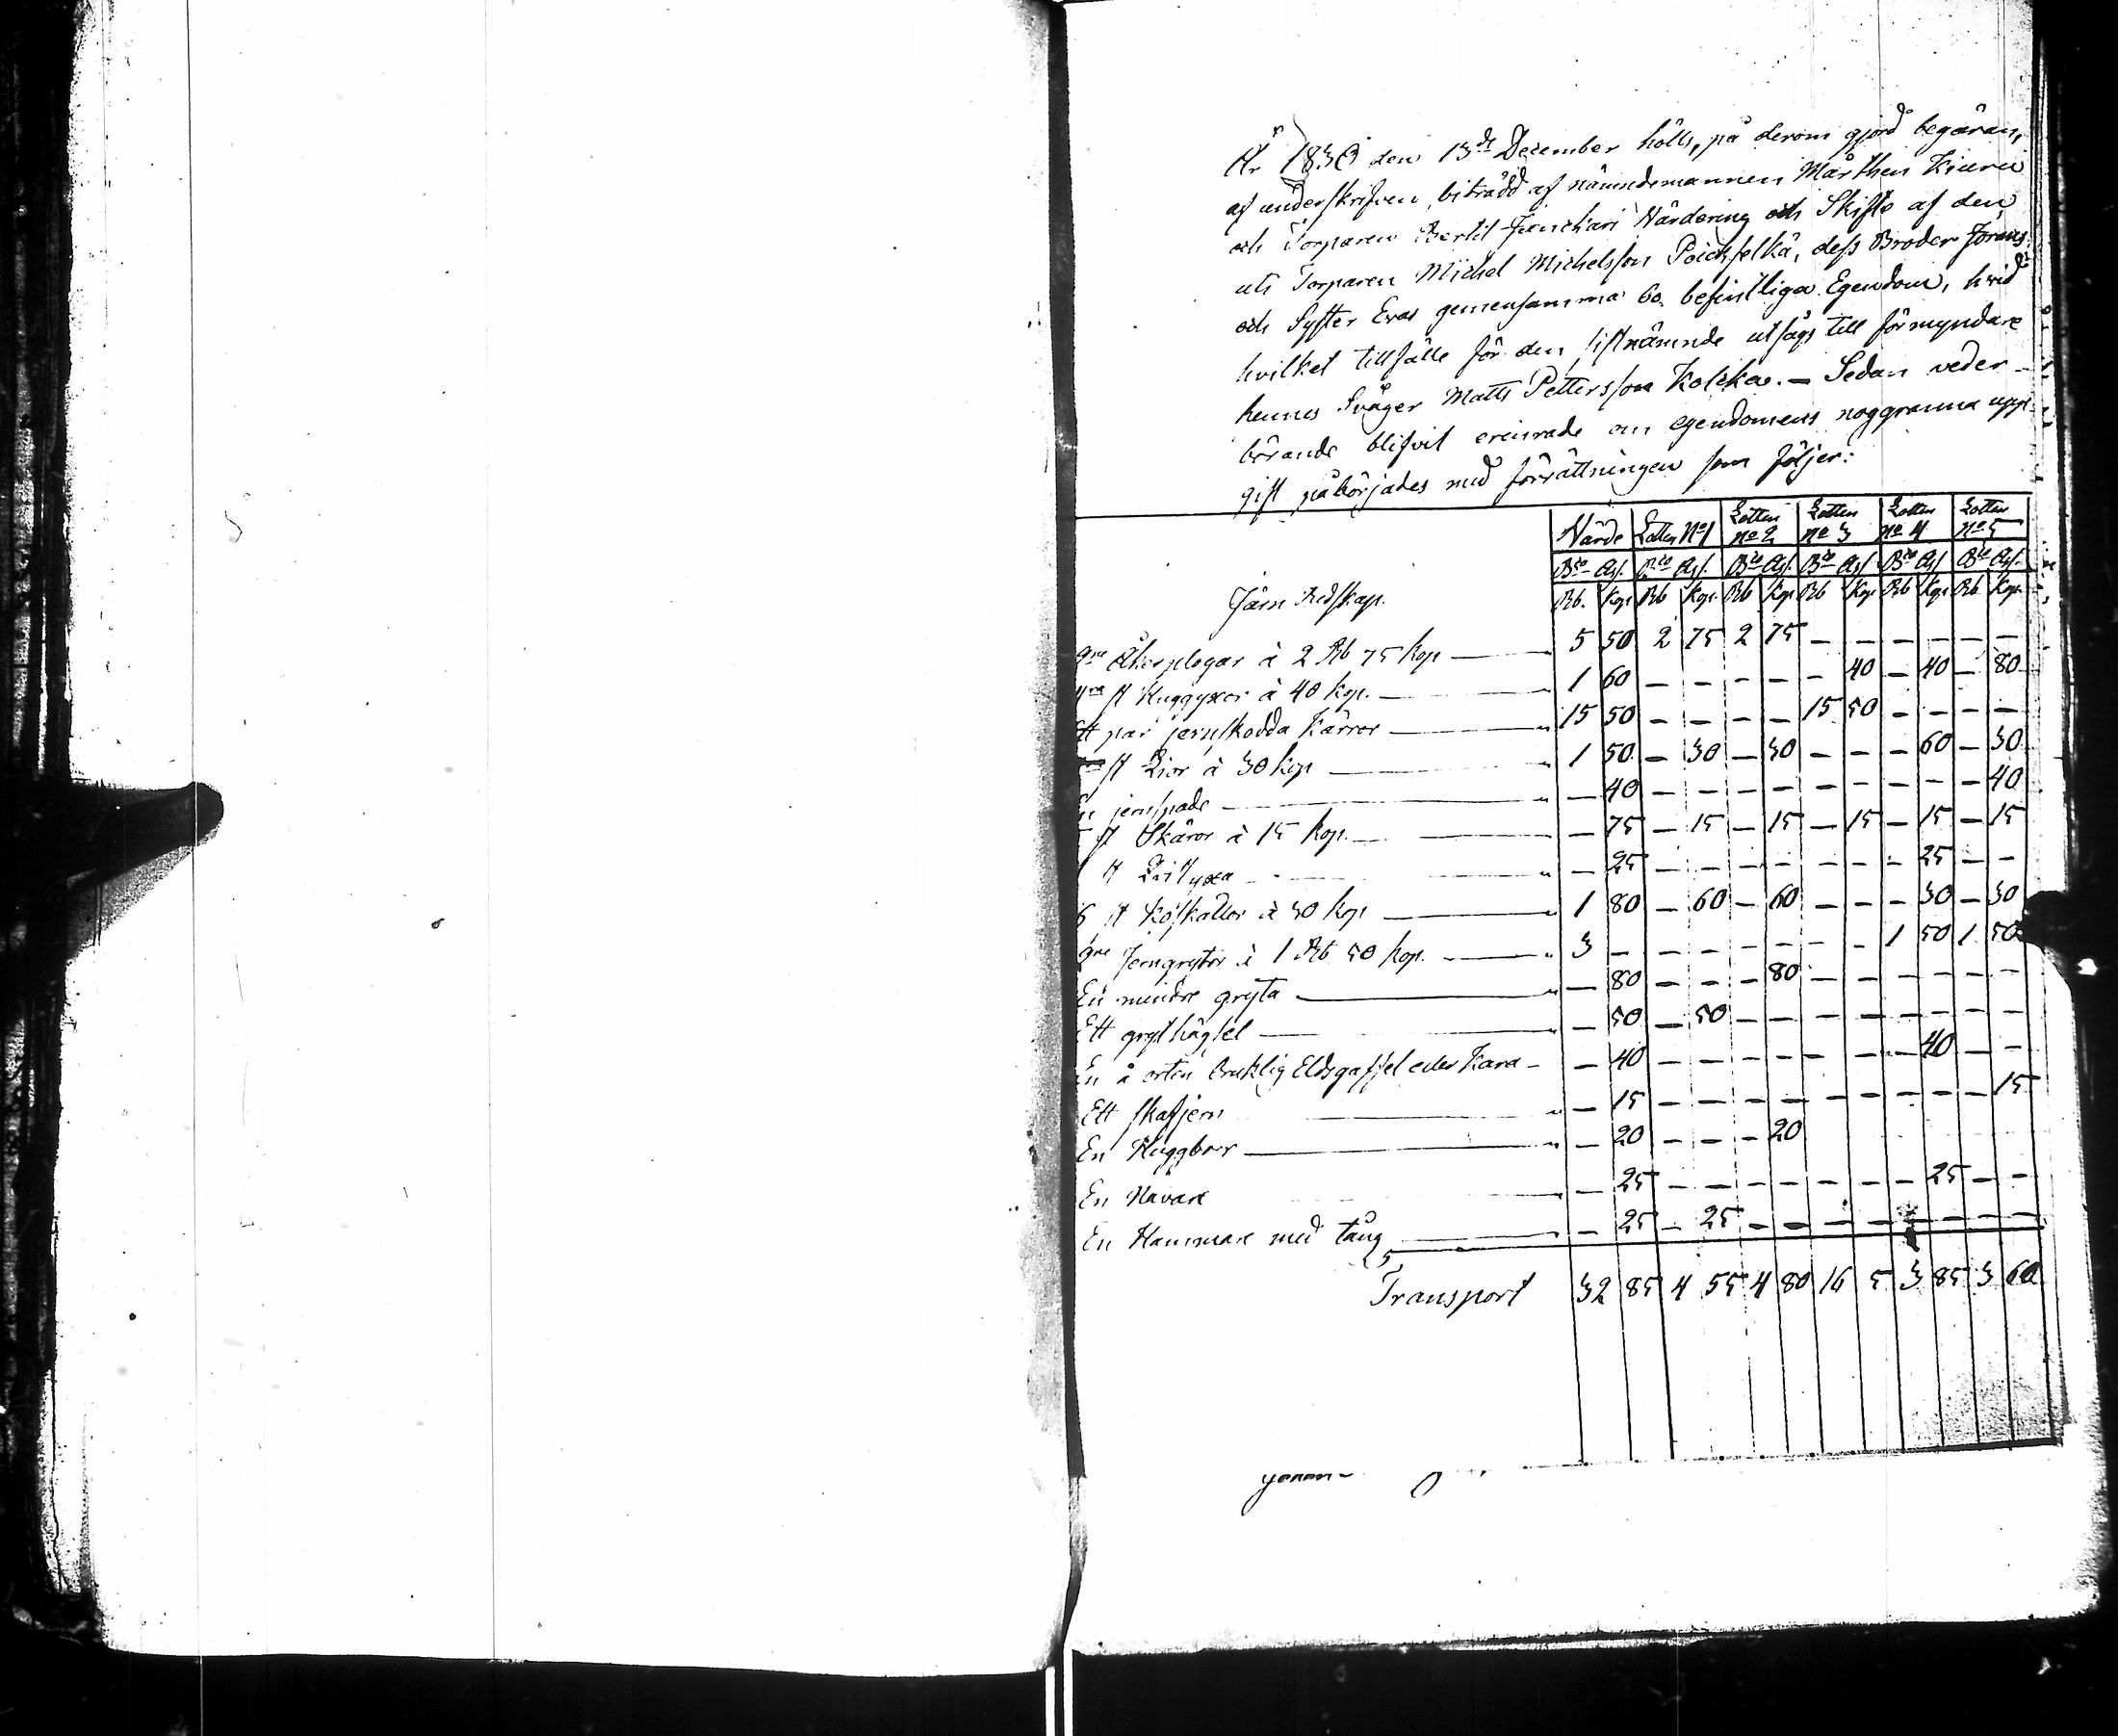 År 1830 den 13de December hölls, på derom gjord begäran,
af underskrifven, biträdd af nämndemannen Mårthen Kiuru
och Torparen Bertil Värdering och Skifte af den
uti Torparen Michel Michelsson Poickselkä, dess Broder Jörans
och Syster Evas gemensamma bo befintliga Egendom, hvid
hvilket tillfälle för den sistnämnde utsågs till förmyndare
hennes Svåger Matts Pettersson Kolcka. — Sedan veder-
börande blifvit erinrade om egendomens noggranna upp-
gift påbörjades med förrättningen som följer:
Värde Lotten No 1 Lotten No 2 Lotten No 3 Lotten No 4 Lotten No 5
Bco Ass. Bco Ass. Bco Ass. Bco Ass. Bco Ass. Bco Ass.
Järn Redskap. Rb. Kop Rb Kop. Rb Kop Rb Kop Rb Kop Rb Kop.
2ne Åkerplogar à 2 Rb 75 Kop — 5 50 2 75 2 75 — — — — — —
4ra st Huggyxor à 40 Kop. — 1 60 — — — — — 40 — 40 — 80
Ett par jernskodda Kärror — 15 50 — — — — 15 50 — — — —
st Lior à 30 Kop — 1 50 — 30 — 30 — — — 60 — 30
En jernspade — — 40 — — — — — — — — — 40
5 st Skäror à 15 Kop. — — 75 — 15 — 15 — 15 — 15 — 15
1 st — 25 — — — — — — — 25 — —
6 st Koskällor à 30 Kop — 1 80 — 60 — 60 — — — 30 — 30
2ne Jerngrytor à 1 Rb 50 Kop. — 3 — — — — — — — 1 50 1 50
En mindre gryta — — 80 — — — 80 — — — — — —
Ett — 50 — 50 — — — — — — — —
En å orten bruklig Eldsgaffel eller Kara — — 40 — — — — — — — 40 — —
Ett skafjern — 15 — — — — — — — — — 15
En Huggborr — — 20 — — — 20
En Navare — 25 — — — — — — — 25 — —
En Hammare med tång — — 25 — 25 — — — — — — — —
Transport 32 85 4 55 4 80 16 5 3 85 3 60